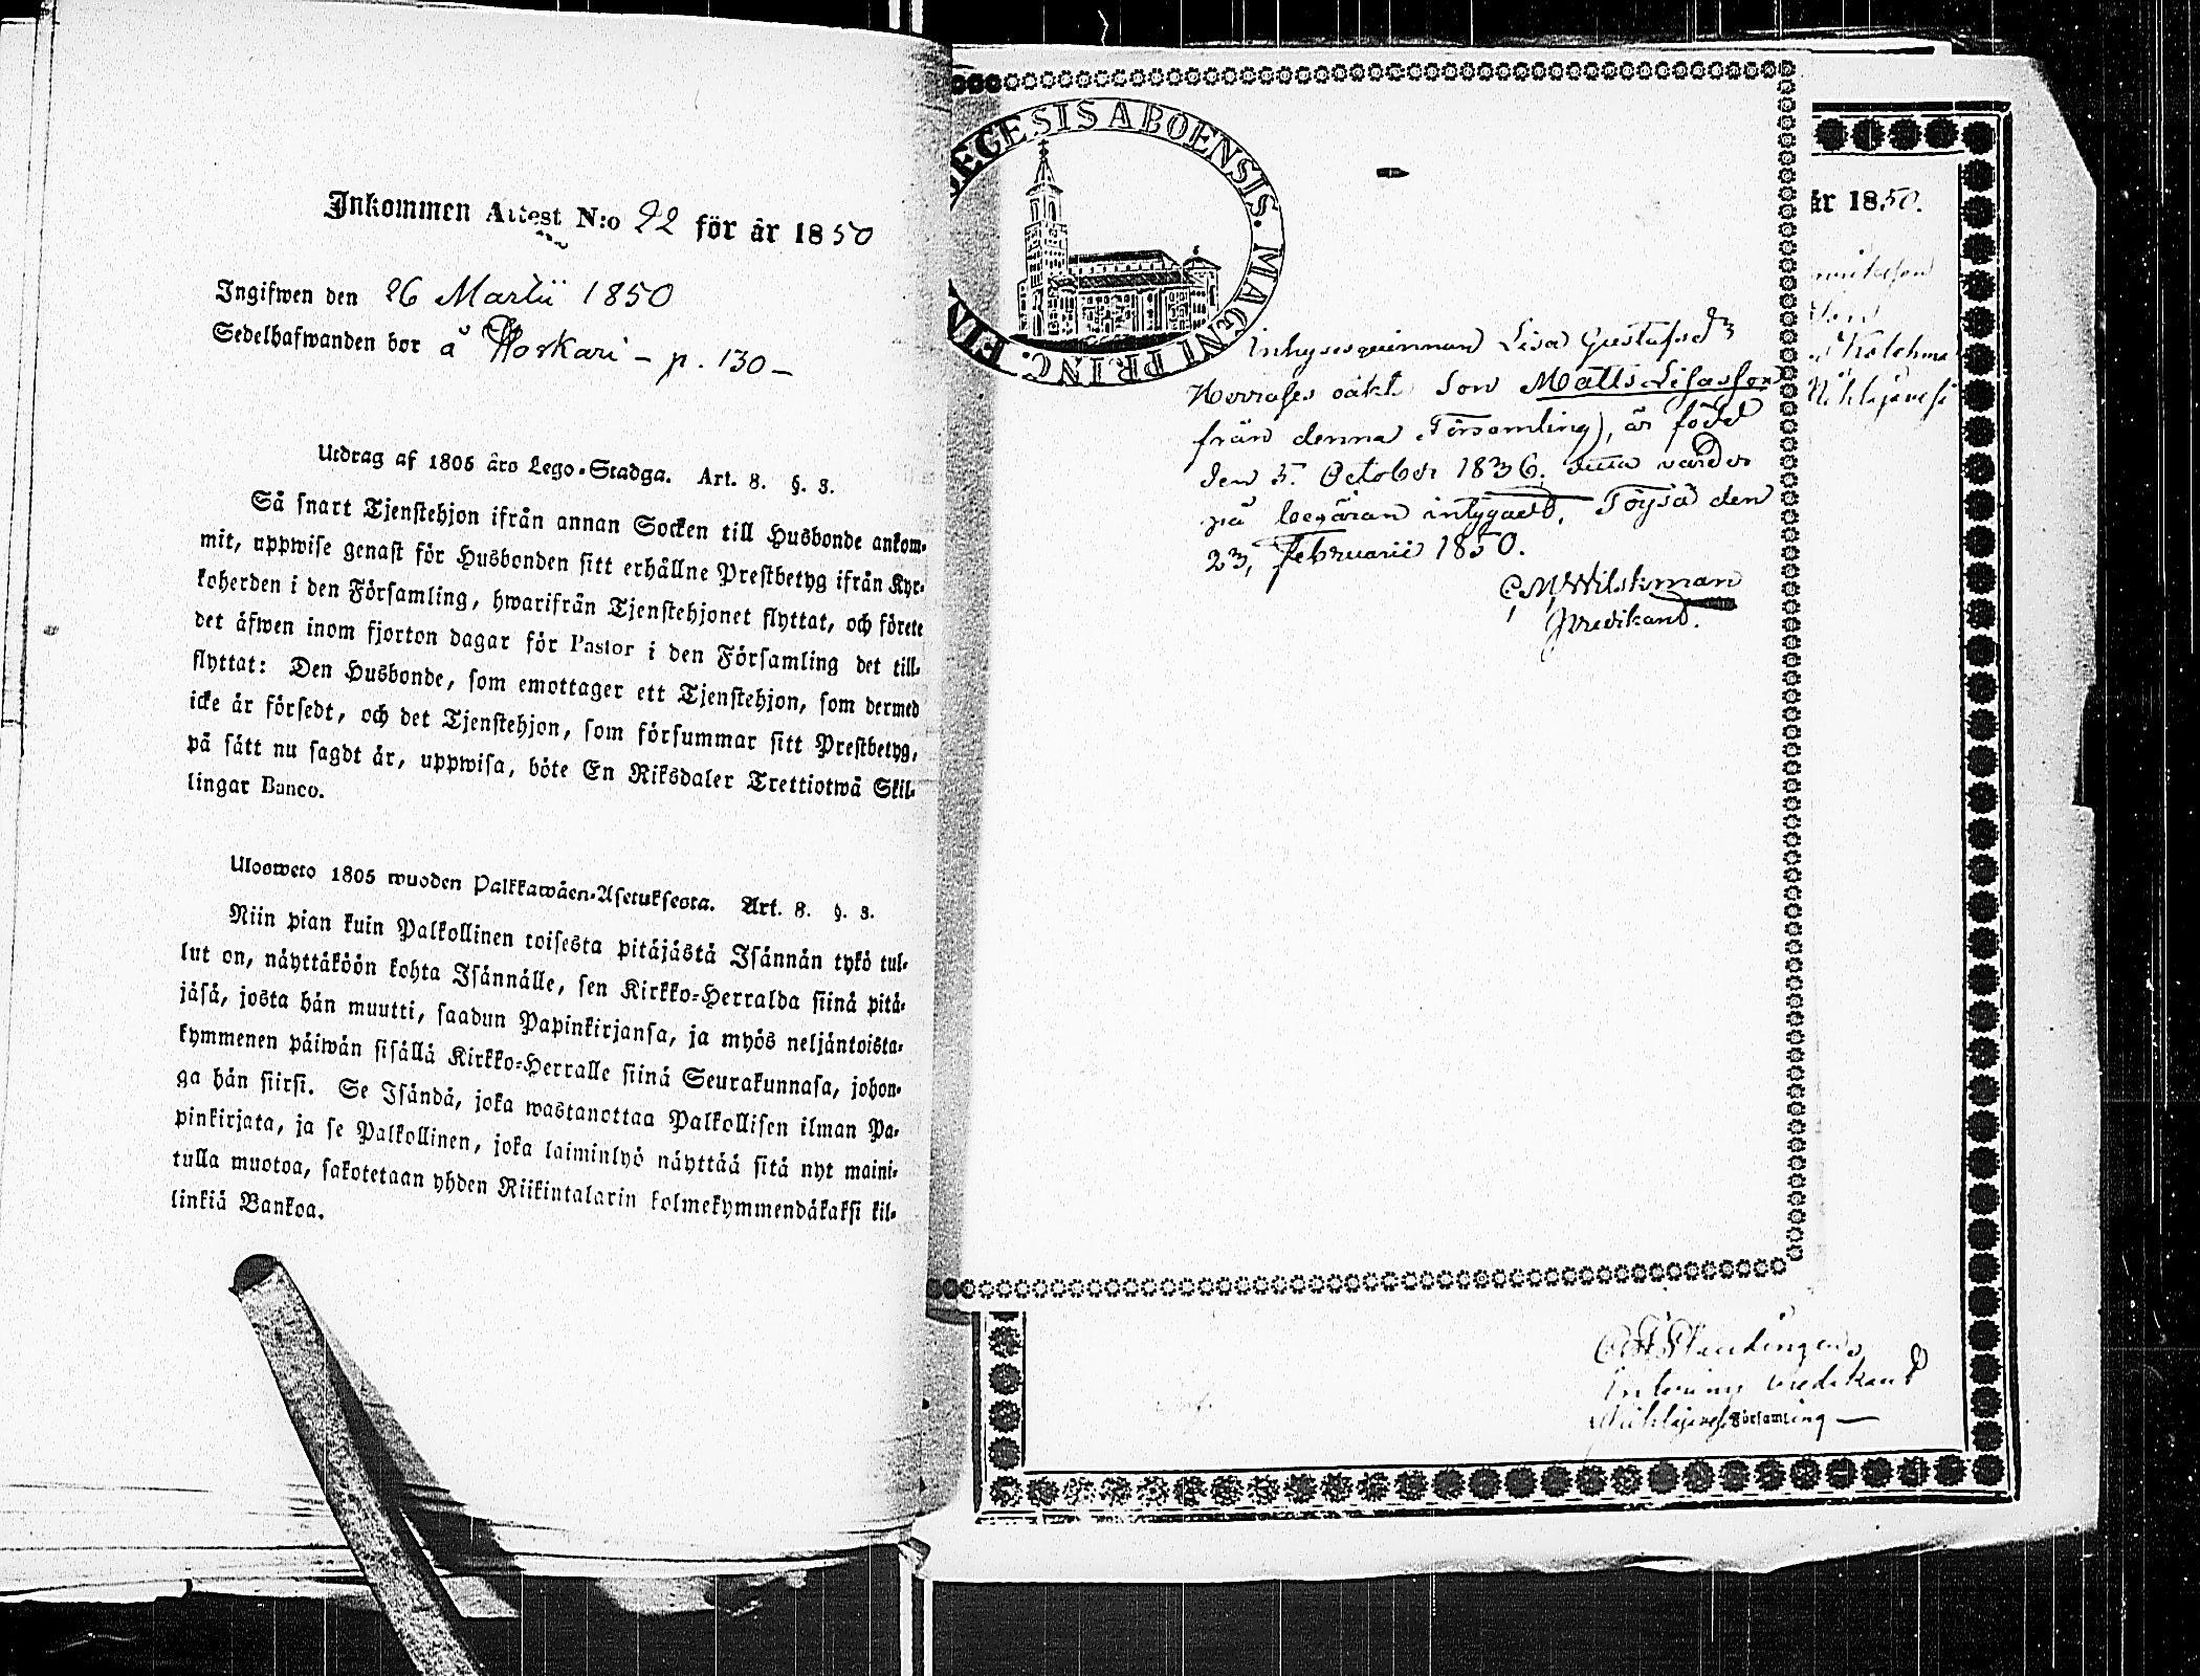 Inkommen Attest N:o 22 för år 1850
Ingifwen den 26 Martii 1850
Sedelhafwanden bor å Koskari - p. 130 -
Utdrag af 1805 års Lego-Stadga. Art. 8. §. 3.
Så snart Tjenstehjon ifrån annan Socken till Husbonde ankom-
mit, uppwise genast för Husbonden sitt erhållne Prestbetyg ifrån Kyr-
koherden i den Församling, hwarifrån Tjenstehjonet flyttat, och förete
det äfwen inom fjorton dagar för Pastor i den Församling det till-
flyttat: Den Husbonde, som emottager ett Tjenstehjon, som dermed
icke är försedt, och det Tjenstehjon, som försummar sitt Prestbetyg,
på sätt nu sagdt är, uppwisa, böte En Riksdaler Trettiotwå Skil-
lingar Banco.
Ulosweto 1805 wuoden Palkkawäen-Asetuksesta. Art. 8. §. 3.
Niin pian kuin Palkollinen toisesta pitäjästä Isännän tykö tul-
lut on, näyttäköön kohta Isännälle, sen Kirkko-Herralda siinä pitä-
jäsä, josta hän muutti, saadun Papinkirjansa, ja myös neljäntoista-
kymmenen päiwän sisällä Kirkko-Herralle siinä Seurakunnasa, johon-
ga hän siirsi. Se Isändä, joka wastanottaa Palkollisen ilman Pa-
pinkirjata, ja se Palkollinen, joka laiminlyö näyttää sitä nyt maini-
tulla muotoa, sakotetaan yhden Riikintalarin kolmekymmendäkaksi kil-
linkiä Bankoa.
EGESIS ABOENSIS. MAGNI PRINC. FIN
Inhysesqvinnan Lisa Gustafsd:r
oäkta Son Matts Lisasson
från denna Församling), är född
den 5. October 1836, detta varder
på begäran intygadt, Töysä den
23, Februarii 1850.
C. M. Wilskman
Predikant.
år 1850.
Predikant
Församling